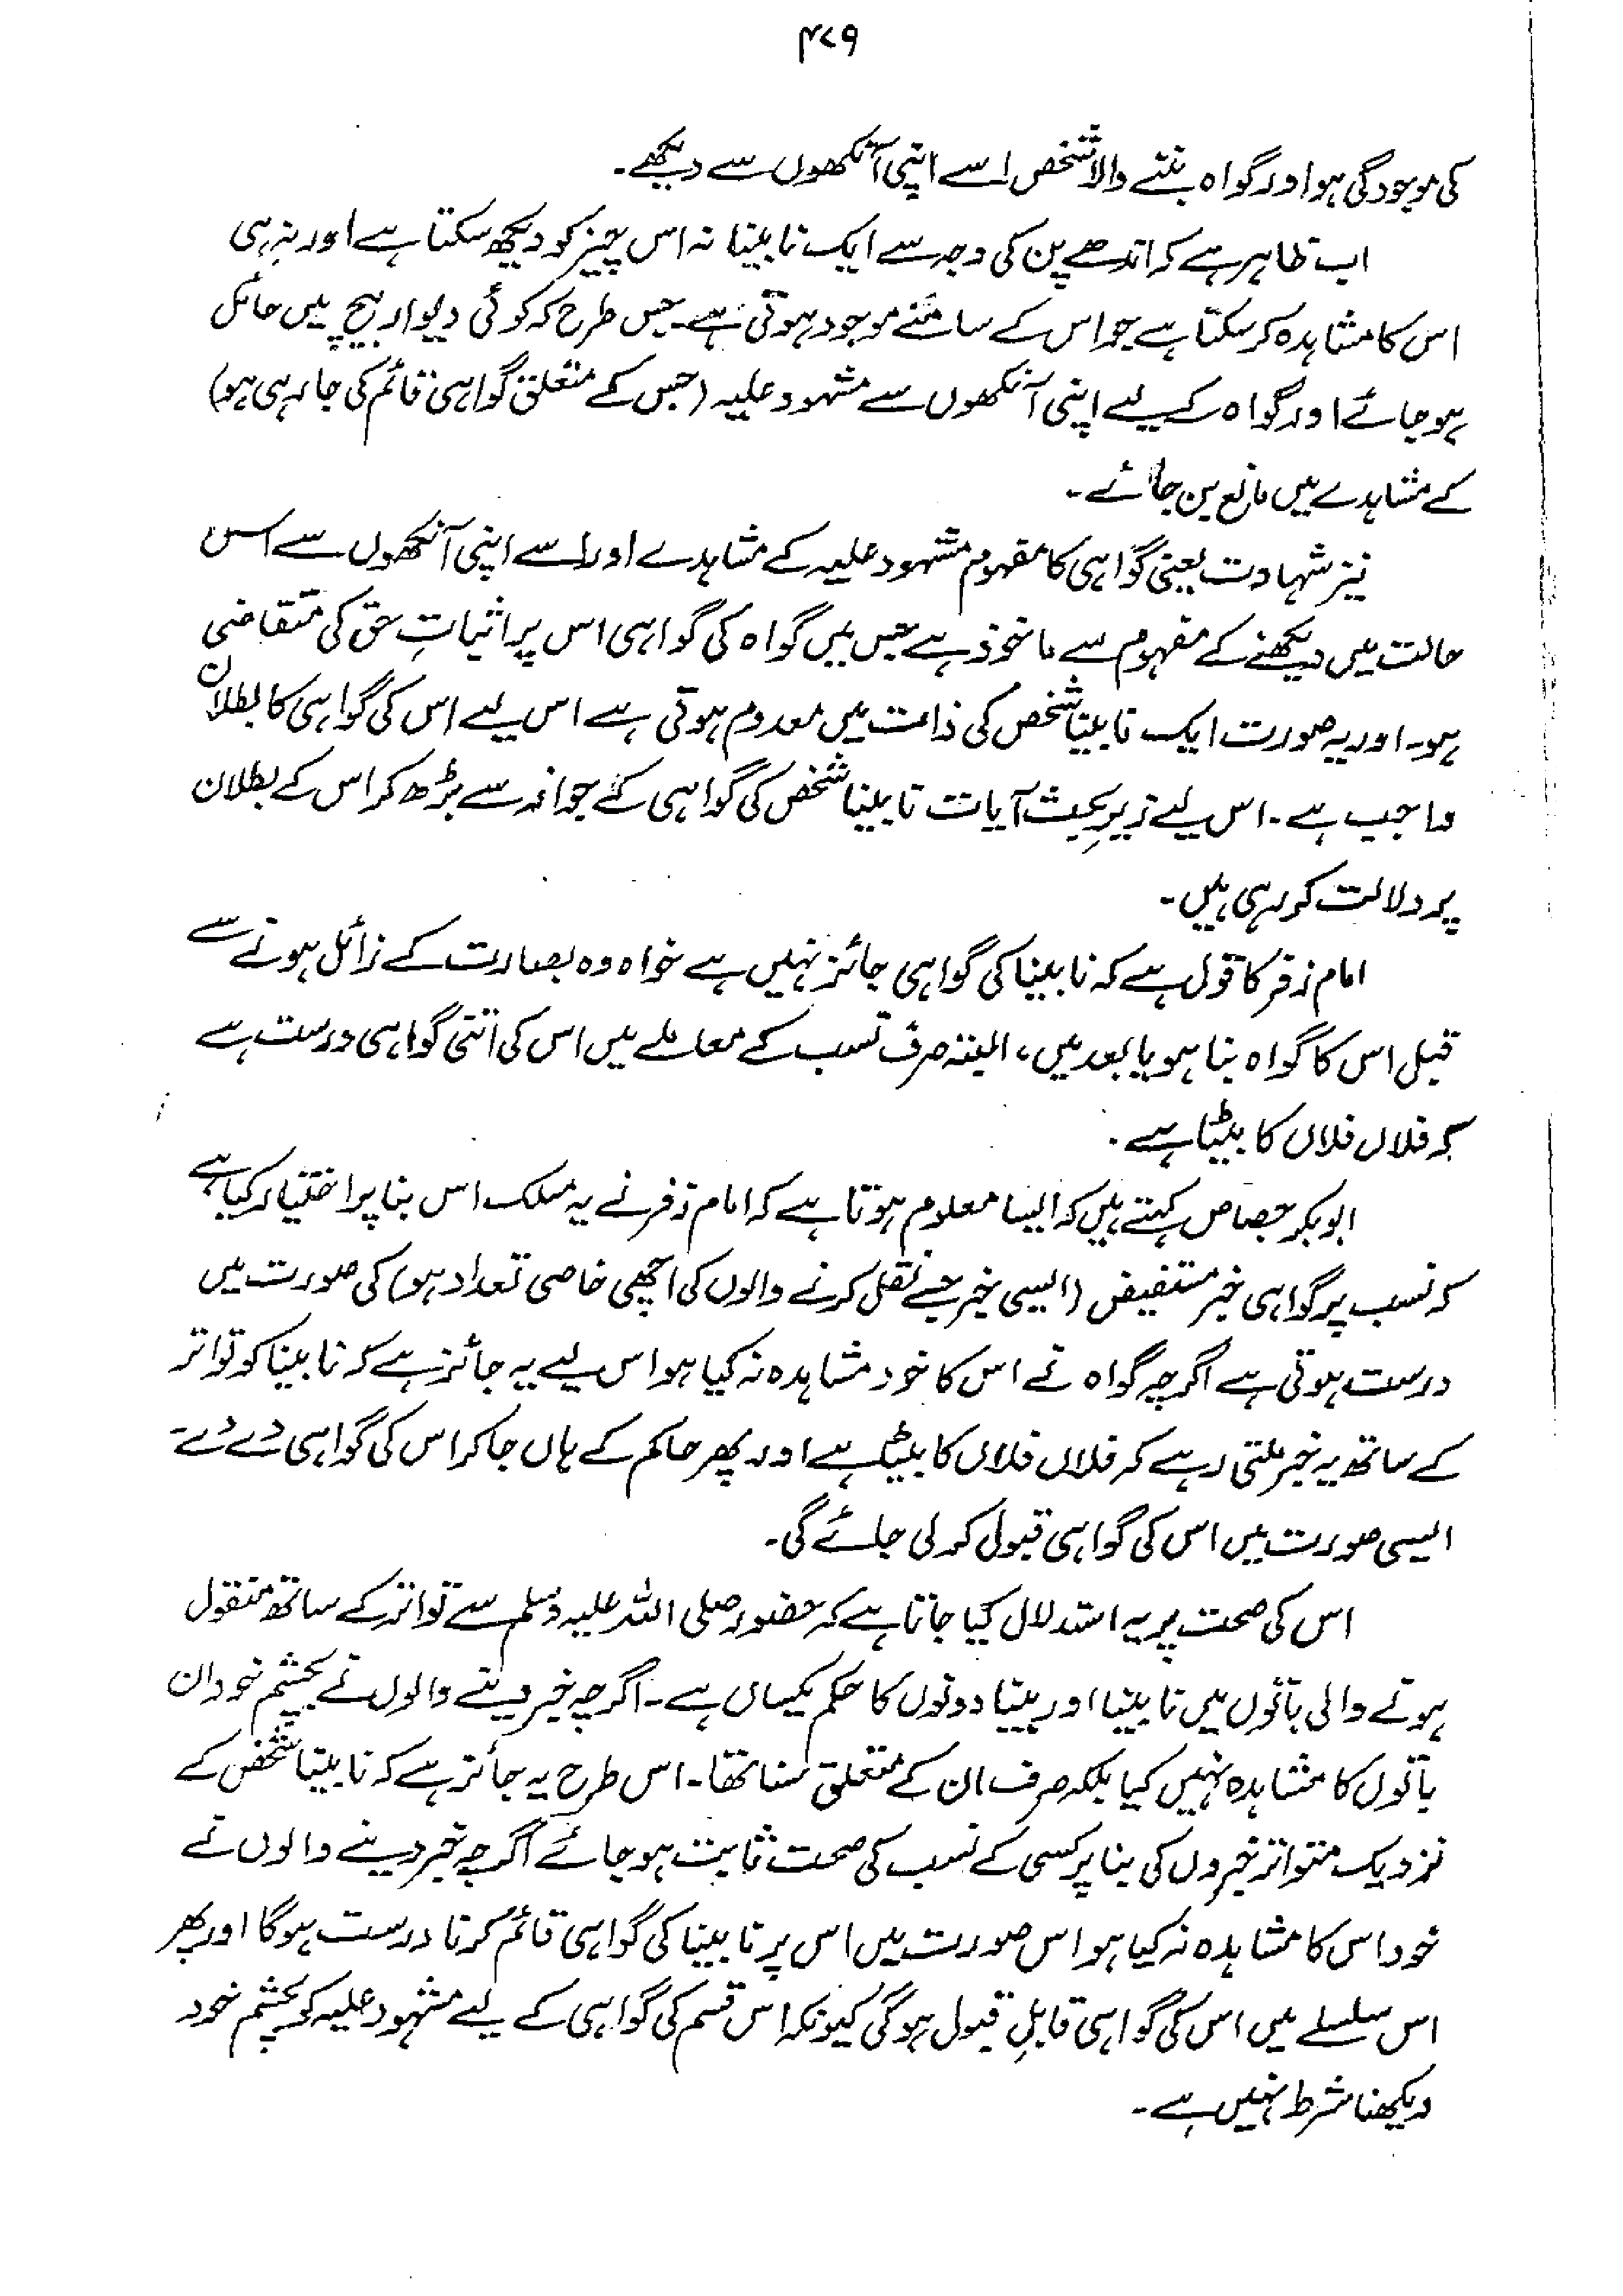 ۴۷۹
کی موجودگی ہو اور گواہ بننے والا شخص اسے اپنی آنکھوں سے دیکھے۔
اب ظاہر ہے کہ اندھے پن کی وجہ سے ایک نابینا نہ اس چیز کو دیکھ سکتا ہے اور نہ ہی
اس کا مشاہدہ کر سکتا ہے جو اس کے سامنے موجود ہوتی ہے۔ جس طرح کہ کوئی دیوار بیچ میں حائل
ہو جائے اور گواہ کے لیے اپنی آنکھوں سے مشہود علیہ (جس کے متعلق گواہی قائم کی جا رہی ہو)
کے مشاہدے میں مانع بن جائے۔
نیز شہادت یعنی گواہی کا مفہوم مشہود علیہ کے مشاہدے اور اسے اپنی آنکھوں سے اس
حالت میں دیکھنے کے مفہوم سے ماخوذ ہے جس میں گواہ کی گواہی اس پر اثباتِ حق کی متقاضی
ہو۔ اور یہ صورت ایک نابینا شخص کی ذات میں معدوم ہوتی ہے اس لیے اس کی گواہی کا بطلان
واجب ہے۔ اس لیے زیرِ بحث آیات نابینا شخص کی گواہی کے جواز سے بڑھ کر اس کے بطلان
پر دلالت کر رہی ہیں۔
امام زفر کا قول ہے کہ نابینا کی گواہی جائز نہیں ہے خواہ وہ بصارت کے زائل ہونے سے
قبل اس کا گواہ بنا ہو یا بعد میں، البتہ صرف نسب کے معاملے میں اس کی اتنی گواہی درست ہے
کہ فلاں فلاں کا بیٹا ہے۔
ابوبکر جصاص کہتے ہیں کہ ایسا معلوم ہوتا ہے کہ امام زفر نے یہ مسلک اس بنا پر اختیار کیا ہے
کہ نسب پر گواہی خبر مستفیض (ایسی خبر جسے نقل کرنے والوں کی اچھی خاصی تعداد ہو) کی صورت میں
درست ہوتی ہے اگرچہ گواہ نے اس کا خود مشاہدہ نہ کیا ہو اس لیے یہ جائز ہے کہ نابینا کو تواتر
کے ساتھ یہ خبر ملتی رہے کہ فلاں فلاں کا بیٹا ہے اور پھر حاکم کے ہاں جا کر اس کی گواہی دے دے۔
ایسی صورت میں اس کی گواہی قبول کر لی جائے گی۔
اس کی صحت پر یہ استدلال کیا جاتا ہے کہ حضور صلی اللہ علیہ وسلم سے تواتر کے ساتھ منقول
ہونے والی باتوں میں نابینا اور بینا دونوں کا حکم یکساں ہے۔ اگرچہ خبر دینے والوں نے بچشم خود ان
باتوں کا مشاہدہ نہیں کیا بلکہ صرف ان کے متعلق سنا تھا۔ اس طرح یہ جائز ہے کہ نابینا شخص کے
نزدیک متواتر خبروں کی بنا پر کسی کے نسب کی صحت ثابت ہو جائے اگرچہ خبر دینے والوں نے
خود اس کا مشاہدہ نہ کیا ہو اس صورت میں اس پر نابینا کی گواہی قائم کرنا درست ہوگا اور پھر
اس سلسلے میں اس کی گواہی قابلِ قبول ہوگی کیونکہ اس قسم کی گواہی کے لیے مشہود علیہ کو بچشم خود
دیکھنا شرط نہیں ہے۔